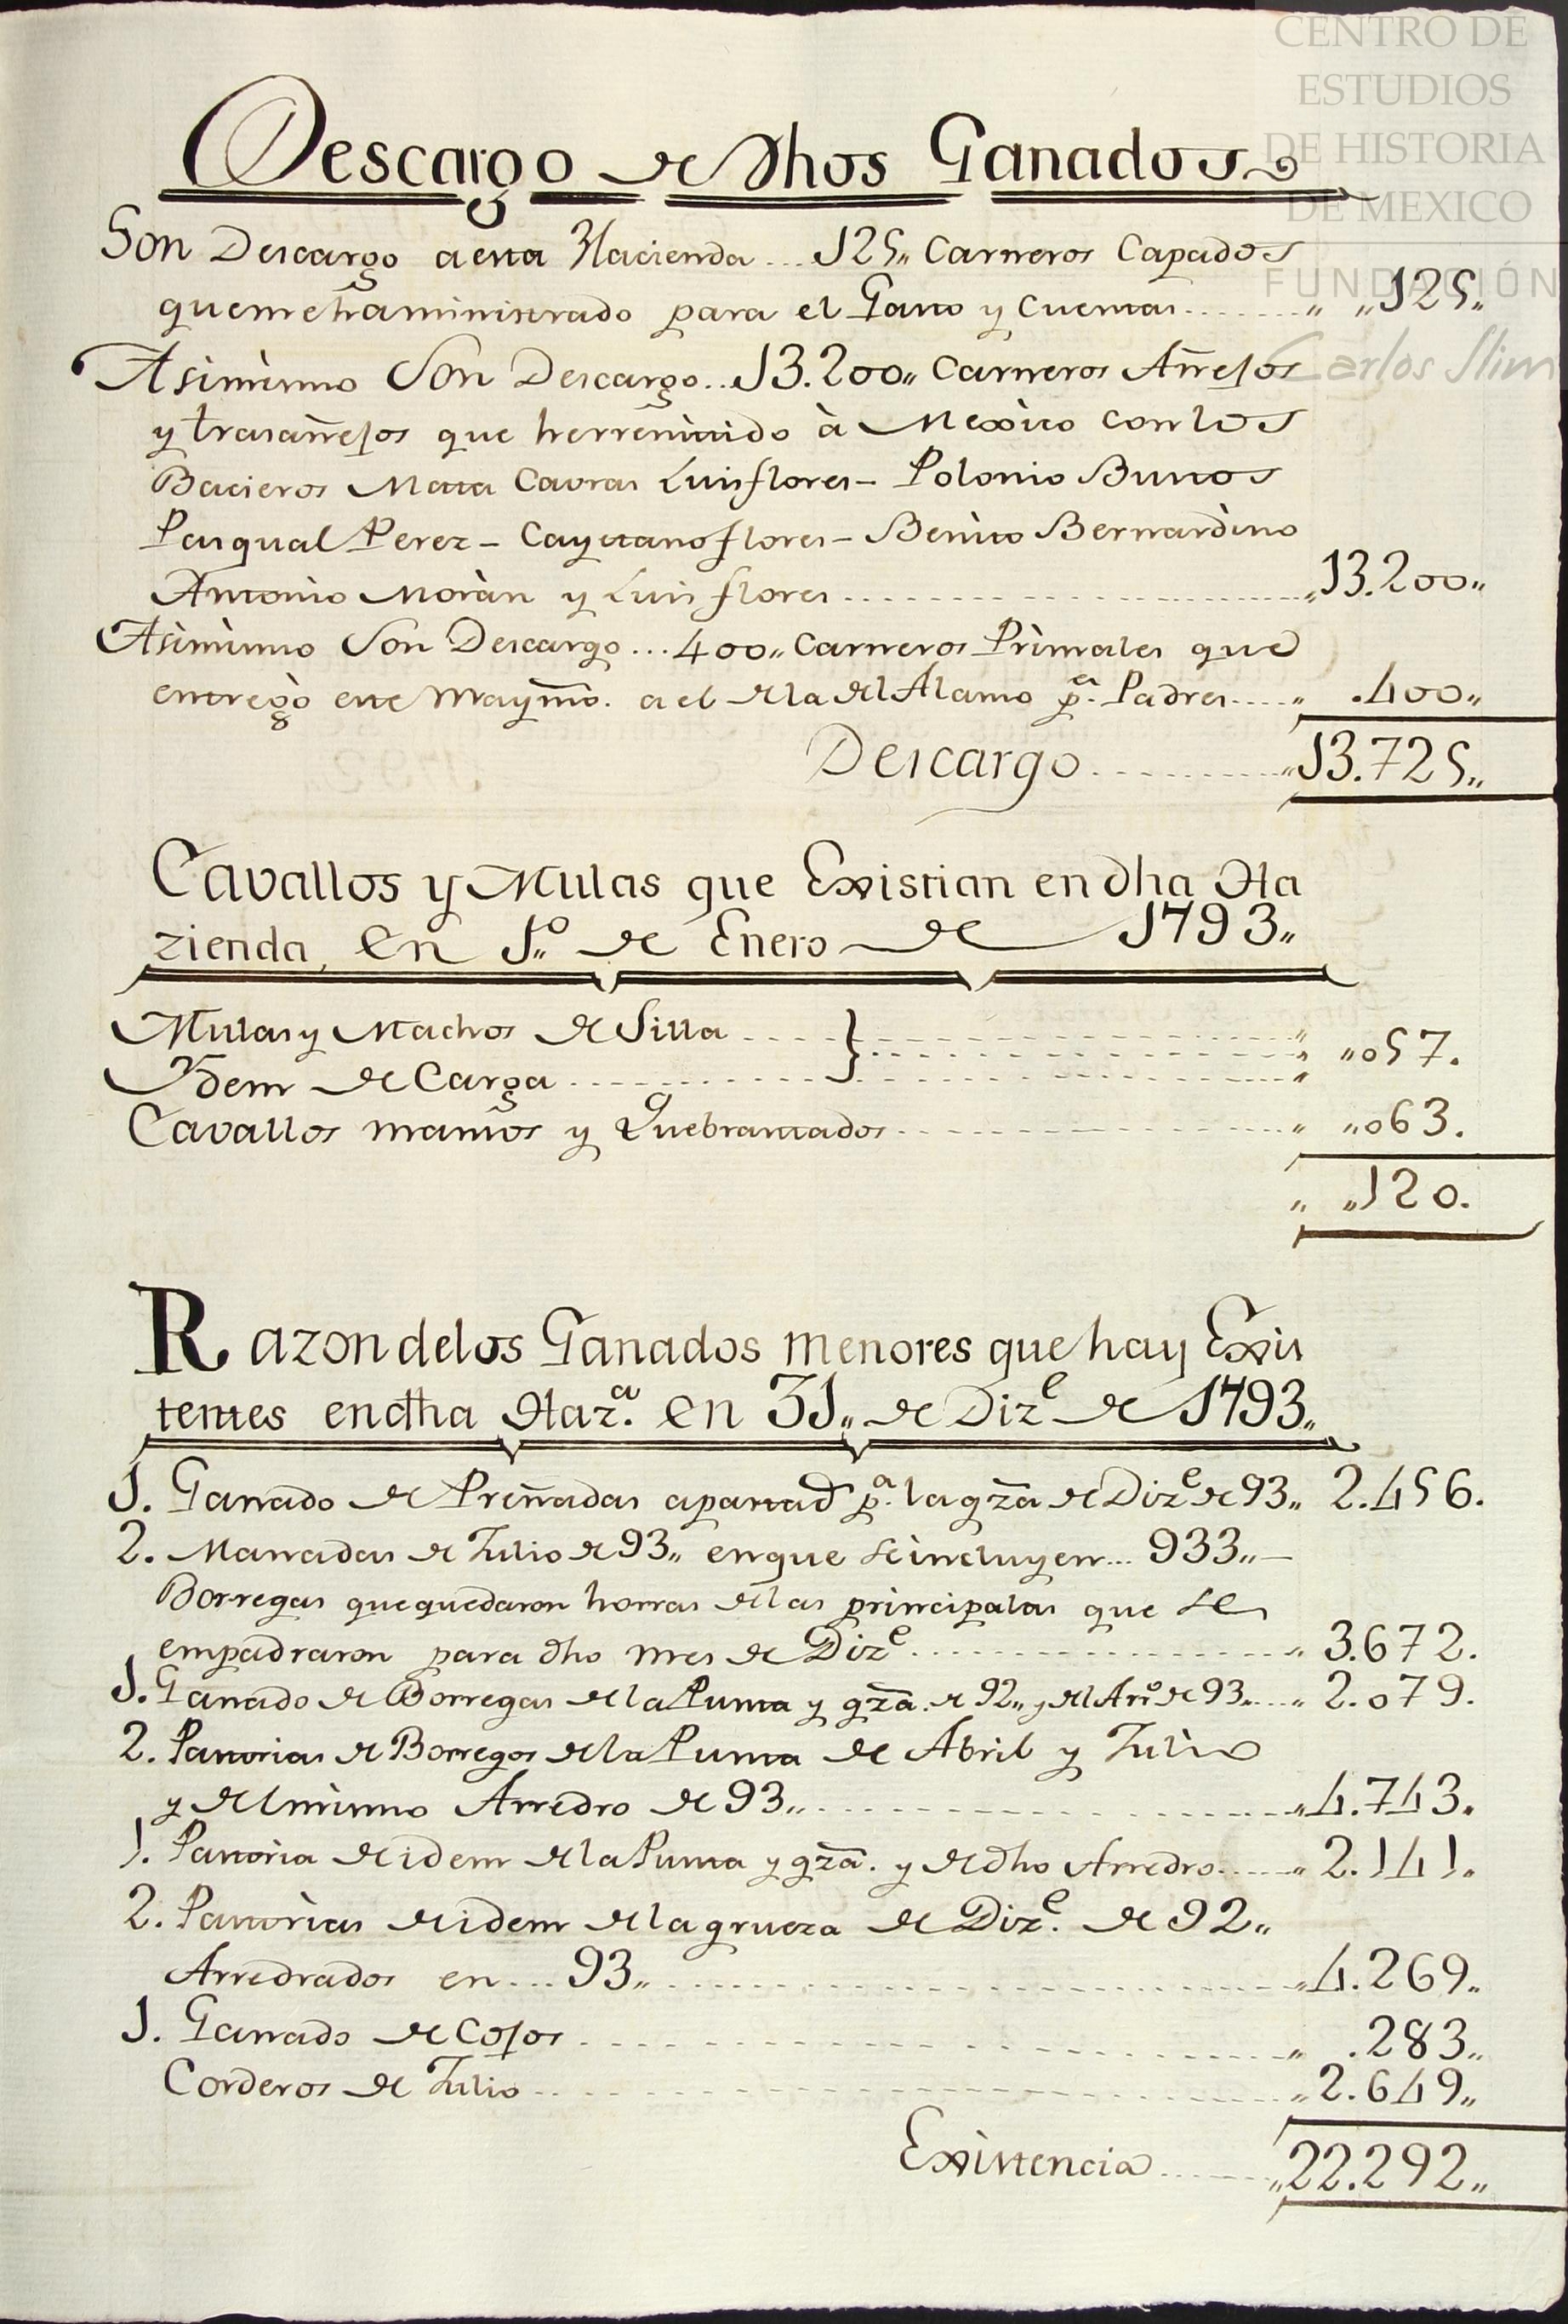 CENTRO DE
ESTUDIOS
DE HISTORIA
DE MEXICO
FUNDACIÓN
Carlos Slim
Descargo de dhos Ganados
Son Descargo a esta Hacienda... 125,, Carneros Capados
que me ha ministrado para el Gasto y Cuentas........ ,, ,,125,,
Asimismo Son Descargo... 13.200,, Carneros Añejos
y trasañejos que he rremitido à Mexico con los
Bacieros Mata Cabras Luis flores - Polonio Bustos
Pasqual Perez - Cayetano flores - Benito Bernardino
Antonio Moràn y Luis flores ........ ,,13.200,,
Asimismo Son Descargo... 400,, Carneros Primales que
entregò este Maymo. a el de la del Alamo pa. Padres.... ,, .400,,
Descargo ........ ,,13.725,,
Cavallos y Mulas que Existian en dha Ha
zienda, en 1,,o de Enero de 1793,,
Mulas y Machos de Silla ....} ........ ,,
Ydem de Carga ........} ........ ,, ,,057.
Cavallos mansos y Quebrantados ........ ,, ,,063.
,, ,,120.
Razon de los Ganados menores que hay Exis
tentes en dha Haza. en 31,, de Dize de 1793,,
1. Ganado de Preñadas apartad pa. la gza de Dize de 93,, 2.456.
2. Manadas de Julio de 93,, en que se incluyen... 933,, -
Borregas que quedaron horras de las principalas que se
empadraron para dho mes de Dize ........ ,, 3.672.
1. Ganado de Borregas de la Punta y gza. de 92,, y del Arro de 93,,.... ,, 2.079.
2. Pastorias de Borregos de la Punta de Abril y Julio
y del mismo Arredro de 93,, ........ ,,4.743.
1. Pastoria de idem de la Punta y gza. y de dho Arredro.... ,, 2.141.
2. Pastorias de idem de la grueza de Dize. de 92,,
Arredrados en... 93,, ........ ,,4.269,,
1. Ganado de Cojos ........ ,, .283,,
Corderos de Julio ........ ,,2.649,,
Existencia ........ ,,22.292,,